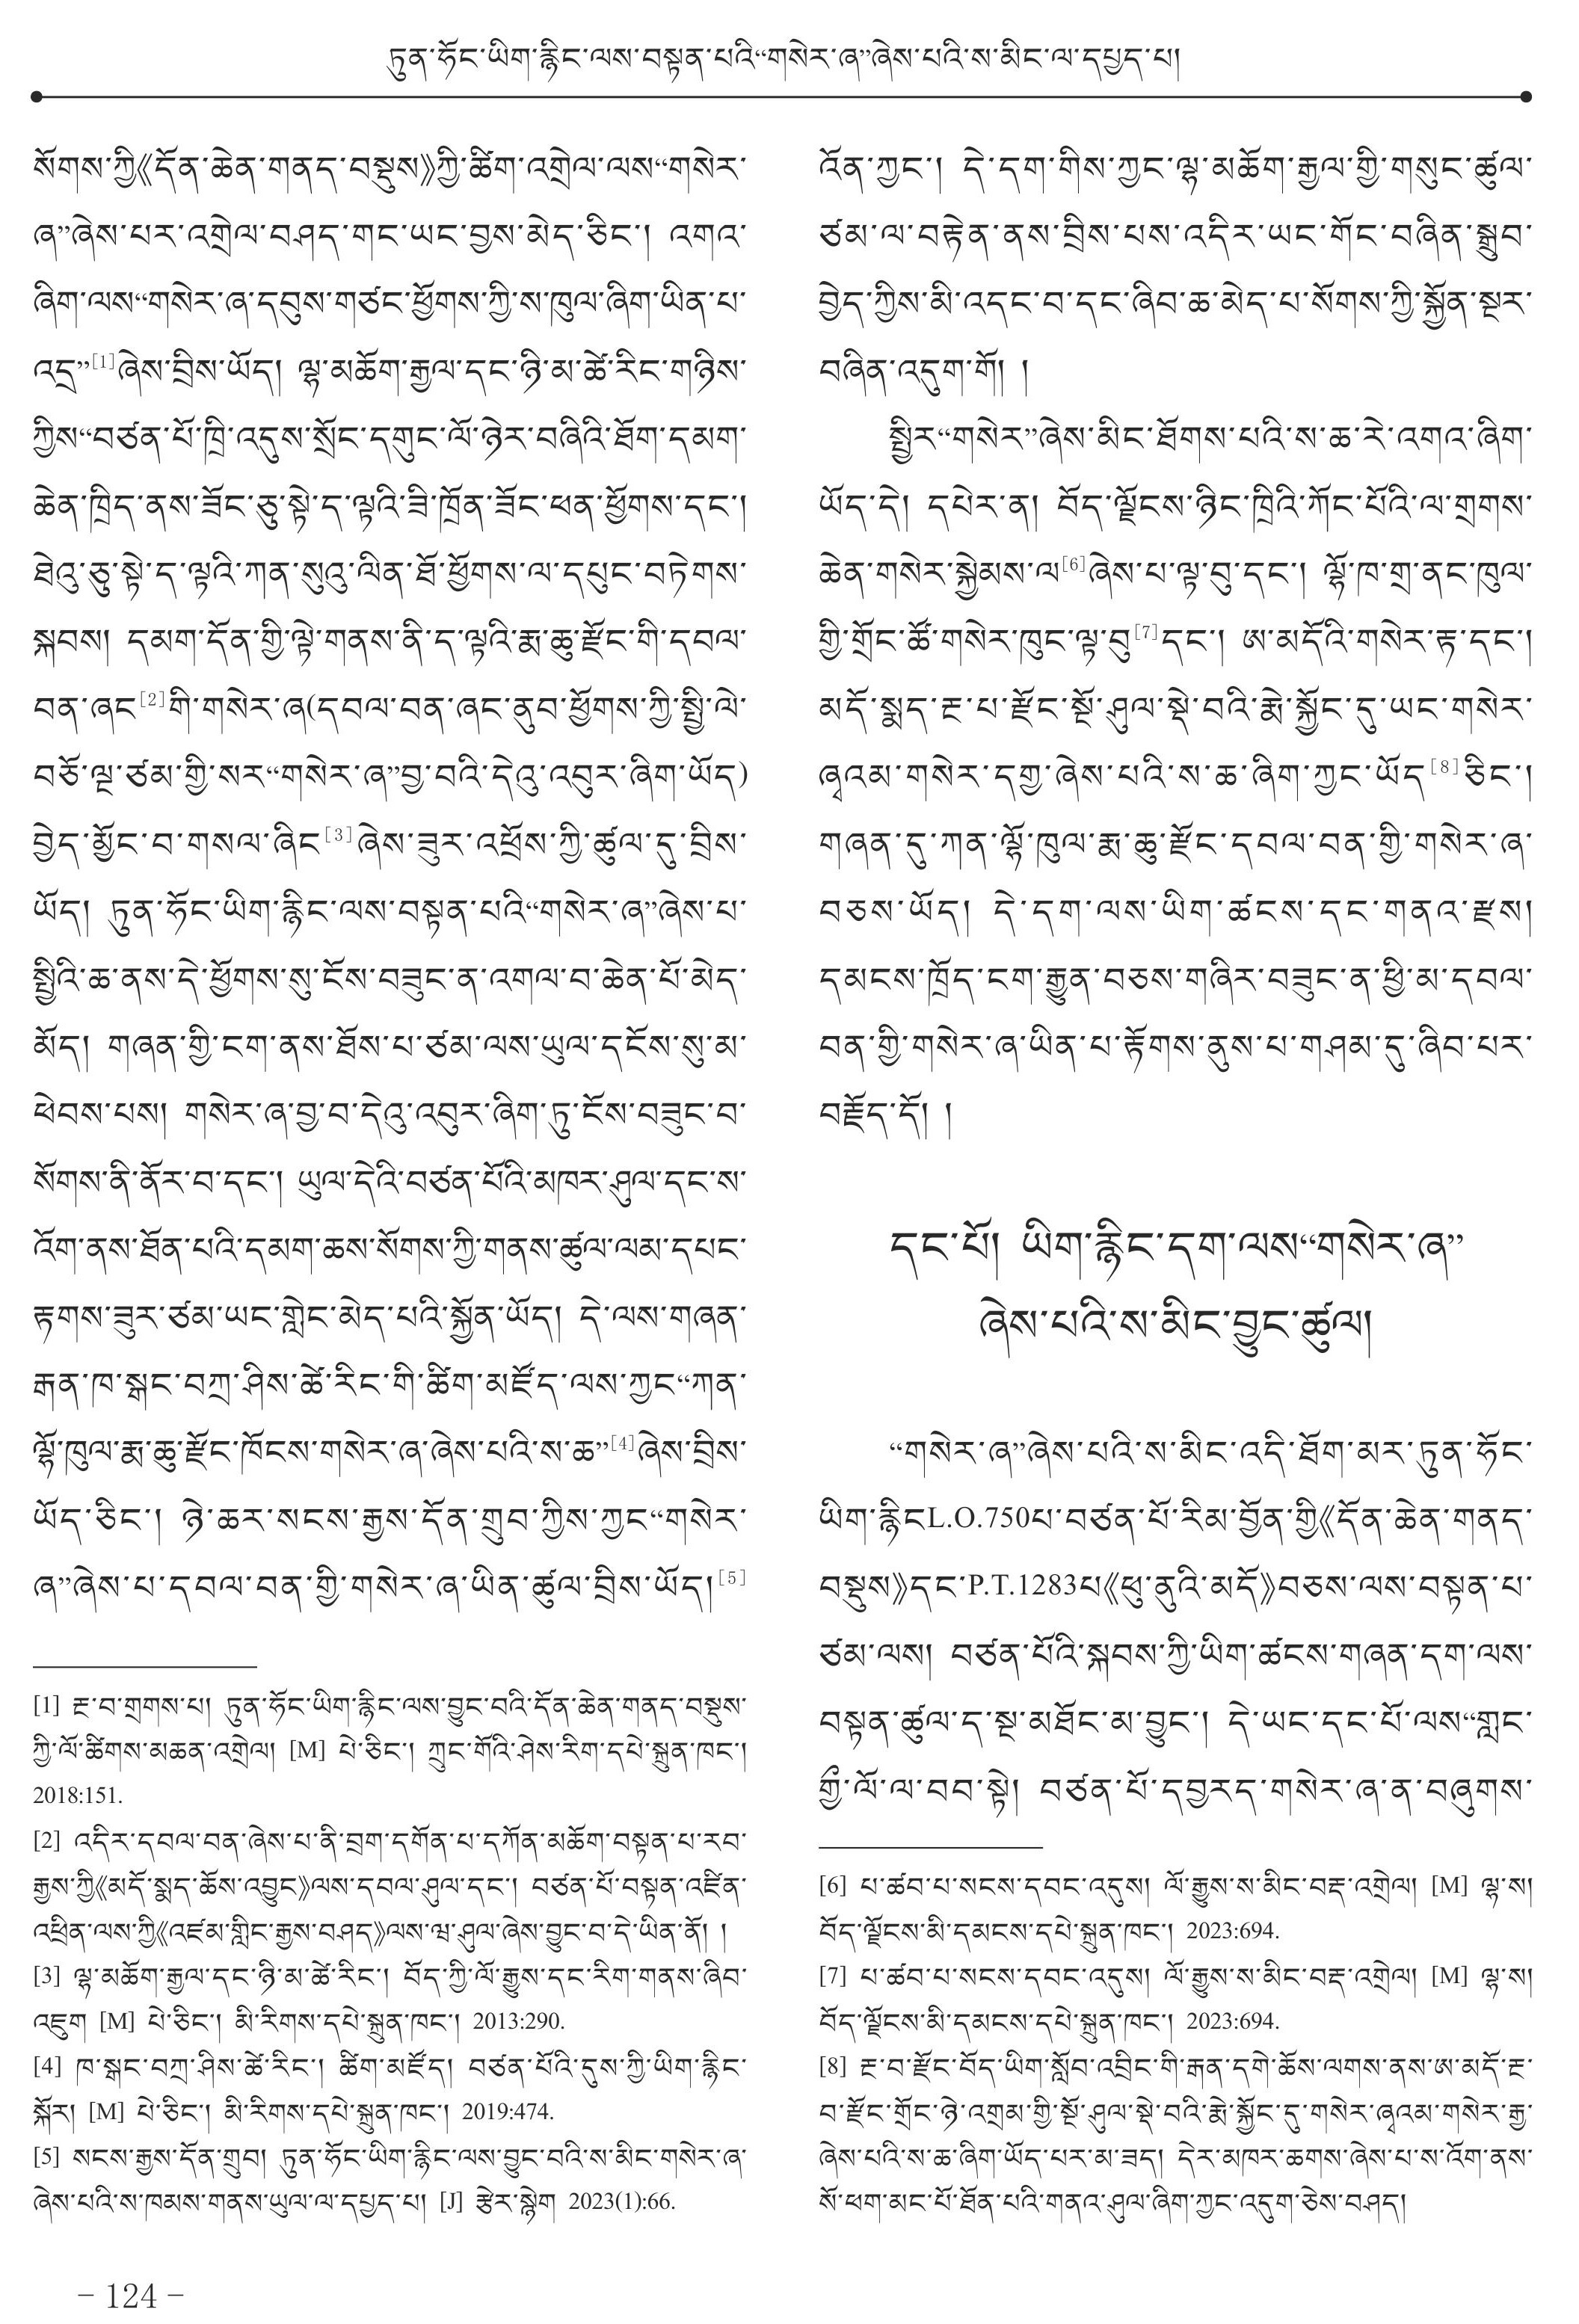 ཏུན་ཧོང་ཡིག་རྙིང་ལས་བསྟན་པའི“གསེར་ཞ”ཞེས་པའི་ས་མིང་ལ་དཔྱད་པ།
སོགས་ཀྱི《དོན་ཆེན་གནད་བསྡུས》ཀྱི་ཚིག་འགྲེལ་ལས“གསེར་
ཞ”ཞེས་པར་འགྲེལ་བཤད་གང་ཡང་བྱས་མེད་ཅིང་། འགའ་
ཞིག་ལས“གསེར་ཞ་དབུས་གཙང་ཕྱོགས་ཀྱི་ས་ཁུལ་ཞིག་ཡིན་པ་
འདྲ”[1]ཞེས་བྲིས་ཡོད། ལྷ་མཆོག་རྒྱལ་དང་ཉི་མ་ཚེ་རིང་གཉིས་
ཀྱིས“བཙན་པོ་ཁྲི་འདུས་སྲོང་དགུང་ལོ་ཉེར་བཞིའི་ཐོག་དམག་
ཆེན་ཁྲིད་ནས་ཟོང་ཅུ་སྟེ་ད་ལྟའི་ཟི་ཁྲོན་ཟོང་ཕན་ཕྱོགས་དང་།
ཐེའུ་ཅུ་སྟེ་ད་ལྟའི་ཀན་སུའུ་ལིན་ཐོ་ཕྱོགས་ལ་དཔུང་བཏེགས་
སྐབས། དམག་དོན་གྱི་ལྟེ་གནས་ནི་ད་ལྟའི་རྨ་ཆུ་རྫོང་གི་དབལ་
བན་ཞང[2]གི་གསེར་ཞ(དབལ་བན་ཞང་ནུབ་ཕྱོགས་ཀྱི་སྤྱི་ལེ་
བཅོ་ལྔ་ཙམ་གྱི་སར“གསེར་ཞ”བྱ་བའི་དེའུ་འབུར་ཞིག་ཡོད)
བྱེད་མྱོང་བ་གསལ་ཞིང[3]ཞེས་ཟུར་འཕྲོས་ཀྱི་ཚུལ་དུ་བྲིས་
ཡོད། ཏུན་ཧོང་ཡིག་རྙིང་ལས་བསྟན་པའི“གསེར་ཞ”ཞེས་པ་
སྤྱིའི་ཆ་ནས་དེ་ཕྱོགས་སུ་ངོས་བཟུང་ན་འགལ་བ་ཆེན་པོ་མེད་
མོད། གཞན་གྱི་ངག་ནས་ཐོས་པ་ཙམ་ལས་ཡུལ་དངོས་སུ་མ་
ཕེབས་པས། གསེར་ཞ་བྱ་བ་དེའུ་འབུར་ཞིག་ཏུ་ངོས་བཟུང་བ་
སོགས་ནི་ནོར་བ་དང་། ཡུལ་དེའི་བཙན་པོའི་མཁར་ཤུལ་དང་ས་
འོག་ནས་ཐོན་པའི་དམག་ཆས་སོགས་ཀྱི་གནས་ཚུལ་ལམ་དཔང་
རྟགས་ཟུར་ཙམ་ཡང་གླེང་མེད་པའི་སྐྱོན་ཡོད། དེ་ལས་གཞན་
རྒན་ཁ་སྒང་བཀྲ་ཤིས་ཚེ་རིང་གི་ཚིག་མཛོད་ལས་ཀྱང“ཀན་
ལྷོ་ཁུལ་རྨ་ཆུ་རྫོང་ཁོངས་གསེར་ཞ་ཞེས་པའི་ས་ཆ”[4]ཞེས་བྲིས་
ཡོད་ཅིང་། ཉེ་ཆར་སངས་རྒྱས་དོན་གྲུབ་ཀྱིས་ཀྱང“གསེར་
ཞ”ཞེས་པ་དབལ་བན་གྱི་གསེར་ཞ་ཡིན་ཚུལ་བྲིས་ཡོད།[5]
[1] རྔ་བ་གྲགས་པ། ཏུན་ཧོང་ཡིག་རྙིང་ལས་བྱུང་བའི་དོན་ཆེན་གནད་བསྡུས་
ཀྱི་ལོ་ཚིགས་མཆན་འགྲེལ། [M] པེ་ཅིང་། ཀྲུང་གོའི་ཤེས་རིག་དཔེ་སྐྲུན་ཁང་།
2018:151.
[2] འདིར་དབལ་བན་ཞེས་པ་ནི་བྲག་དགོན་པ་དཀོན་མཆོག་བསྟན་པ་རབ་
རྒྱས་ཀྱི《མདོ་སྨད་ཆོས་འབྱུང》ལས་དབལ་ཤུལ་དང་། བཙན་པོ་བསྟན་འཛིན་
འཕྲིན་ལས་ཀྱི《འཛམ་གླིང་རྒྱས་བཤད》ལས་ཝ་ཤུལ་ཞེས་བྱུང་བ་དེ་ཡིན་ནོ། །
[3] ལྷ་མཆོག་རྒྱལ་དང་ཉི་མ་ཚེ་རིང་། བོད་ཀྱི་ལོ་རྒྱུས་དང་རིག་གནས་ཞིབ་
འཇུག [M] པེ་ཅིང་། མི་རིགས་དཔེ་སྐྲུན་ཁང་། 2013:290.
[4] ཁ་སྒང་བཀྲ་ཤིས་ཚེ་རིང་། ཚིག་མཛོད། བཙན་པོའི་དུས་ཀྱི་ཡིག་རྙིང་
སྐོར། [M] པེ་ཅིང་། མི་རིགས་དཔེ་སྐྲུན་ཁང་། 2019:474.
[5] སངས་རྒྱས་དོན་གྲུབ། ཏུན་ཧོང་ཡིག་རྙིང་ལས་བྱུང་བའི་ས་མིང་གསེར་ཞ་
ཞེས་པའི་ས་ཁམས་གནས་ཡུལ་ལ་དཔྱད་པ། [J] རྩེར་སྙེག 2023(1):66.
འོན་ཀྱང་། དེ་དག་གིས་ཀྱང་ལྷ་མཆོག་རྒྱལ་གྱི་གསུང་ཚུལ་
ཙམ་ལ་བརྟེན་ནས་བྲིས་པས་འདིར་ཡང་གོང་བཞིན་སྒྲུབ་
བྱེད་ཀྱིས་མི་འདང་བ་དང་ཞིབ་ཆ་མེད་པ་སོགས་ཀྱི་སྐྱོན་སྔར་
བཞིན་འདུག་གོ། །
སྤྱིར“གསེར”ཞེས་མིང་ཐོགས་པའི་ས་ཆ་རེ་འགའ་ཞིག་
ཡོད་དེ། དཔེར་ན། བོད་ལྗོངས་ཉིང་ཁྲིའི་ཀོང་པོའི་ལ་གྲགས་
ཆེན་གསེར་སྐྱེམས་ལ[6]ཞེས་པ་ལྟ་བུ་དང་། ལྷོ་ཁ་གྲ་ནང་ཁུལ་
གྱི་གྲོང་ཚོ་གསེར་ཁུང་ལྟ་བུ[7]དང་། ཨ་མདོའི་གསེར་རྟ་དང་།
མདོ་སྨད་རྔ་པ་རྫོང་སྔོ་ཤུལ་སྡེ་བའི་རྨེ་སྐྱོང་དུ་ཡང་གསེར་
ཞྭའམ་གསེར་དགྱ་ཞེས་པའི་ས་ཆ་ཞིག་ཀྱང་ཡོད[8]ཅིང་།
གཞན་དུ་ཀན་ལྷོ་ཁུལ་རྨ་ཆུ་རྫོང་དབལ་བན་གྱི་གསེར་ཞ་
བཅས་ཡོད། དེ་དག་ལས་ཡིག་ཚངས་དང་གནའ་རྫས།
དམངས་ཁྲོད་ངག་རྒྱུན་བཅས་གཞིར་བཟུང་ན་ཕྱི་མ་དབལ་
བན་གྱི་གསེར་ཞ་ཡིན་པ་རྟོགས་ནུས་པ་གཤམ་དུ་ཞིབ་པར་
བརྗོད་དོ། །
དང་པོ། ཡིག་རྙིང་དག་ལས“གསེར་ཞ”
ཞེས་པའི་ས་མིང་བྱུང་ཚུལ།
“གསེར་ཞ”ཞེས་པའི་ས་མིང་འདི་ཐོག་མར་ཏུན་ཧོང་
ཡིག་རྙིངL.O.750པ་བཙན་པོ་རིམ་བྱོན་གྱི《དོན་ཆེན་གནད་
བསྡུས》དང་P.T.1283པ《ཕུ་ནུའི་མདོ》བཅས་ལས་བསྟན་པ་
ཙམ་ལས། བཙན་པོའི་སྐབས་ཀྱི་ཡིག་ཚངས་གཞན་དག་ལས་
བསྟན་ཚུལ་ད་སྔ་མཐོང་མ་བྱུང་། དེ་ཡང་དང་པོ་ལས“གླང་
གྱི་ལོ་ལ་བབ་སྟེ། བཙན་པོ་དབྱརད་གསེར་ཞ་ན་བཞུགས་
[6] པ་ཚབ་པ་སངས་དབང་འདུས། ལོ་རྒྱུས་ས་མིང་བརྡ་འགྲེལ། [M] ལྷ་ས།
བོད་ལྗོངས་མི་དམངས་དཔེ་སྐྲུན་ཁང་། 2023:694.
[7] པ་ཚབ་པ་སངས་དབང་འདུས། ལོ་རྒྱུས་ས་མིང་བརྡ་འགྲེལ། [M] ལྷ་ས།
བོད་ལྗོངས་མི་དམངས་དཔེ་སྐྲུན་ཁང་། 2023:694.
[8] རྔ་བ་རྫོང་བོད་ཡིག་སློབ་འབྲིང་གི་རྒན་དགེ་ཆོས་ལགས་ནས་ཨ་མདོ་རྔ་
བ་རྫོང་གྲོང་ཉེ་འགྲམ་གྱི་སྔོ་ཤུལ་སྡེ་བའི་རྨེ་སྐྱོང་དུ་གསེར་ཞྭའམ་གསེར་རྒྱ་
ཞེས་པའི་ས་ཆ་ཞིག་ཡོད་པར་མ་ཟད། དེར་མཁར་ཆགས་ཞེས་པ་ས་འོག་ནས་
སོ་ཕག་མང་པོ་ཐོན་པའི་གནའ་ཤུལ་ཞིག་ཀྱང་འདུག་ཅེས་བཤད།
– 124 –